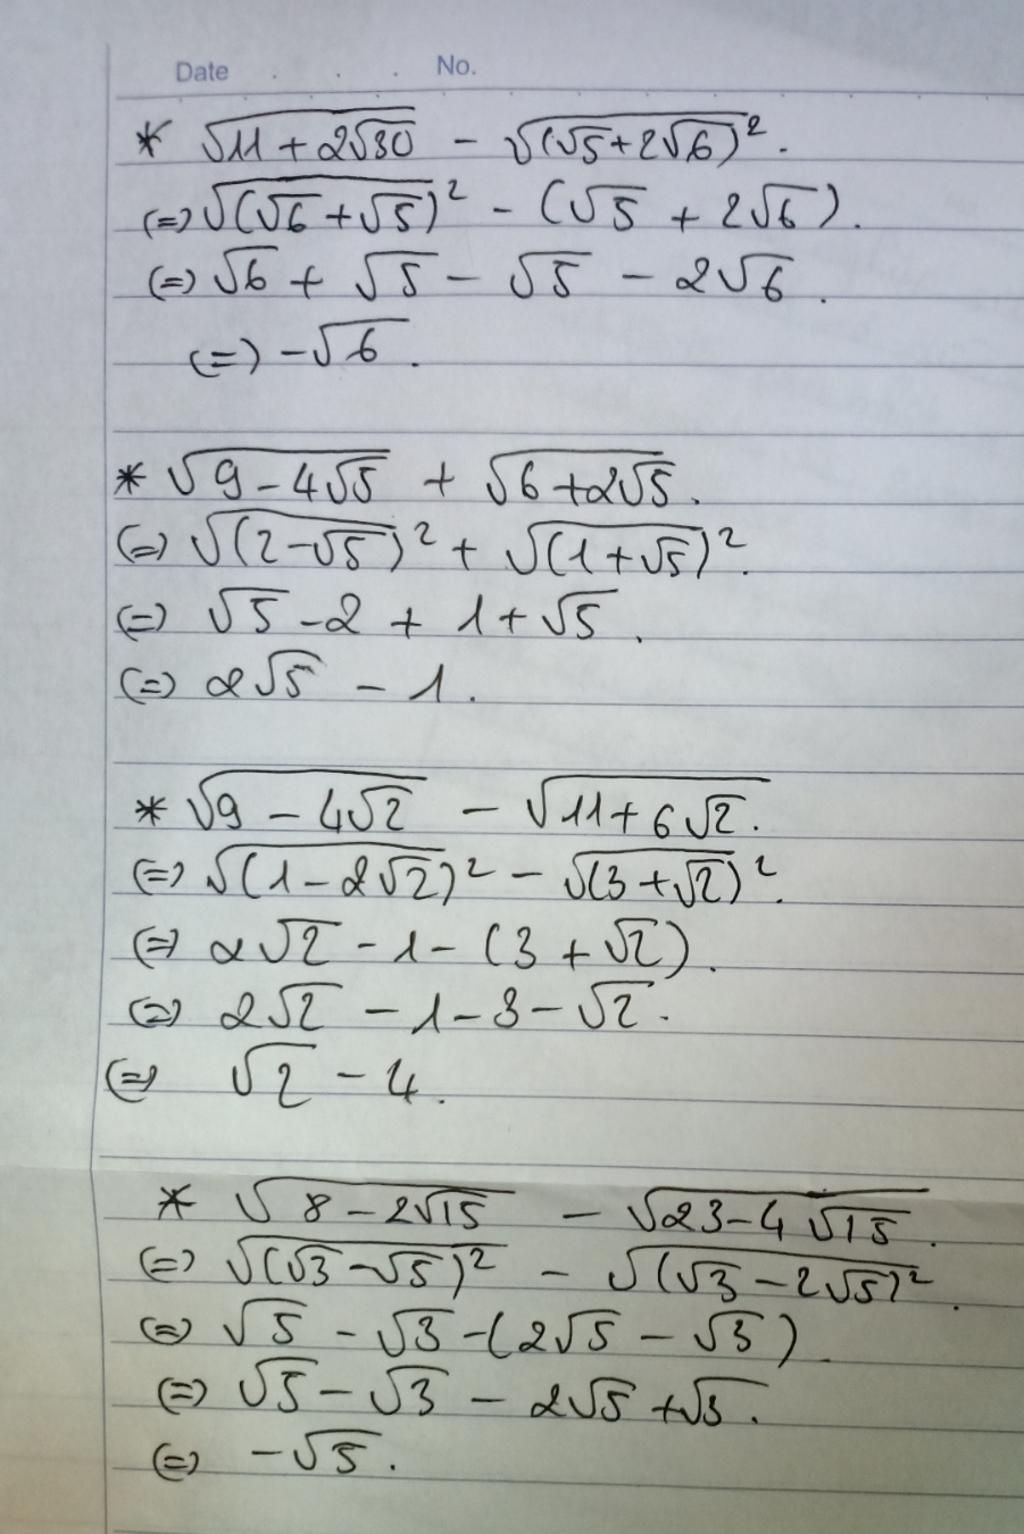 Date . . . No.
* √(11 + 2√30) - √((√5+2√6)²).
(=) √((√6 + √5)²) - (√5 + 2√6).
(=) √6 + √5 - √5 - 2√6.
(=) -√6.
* √(9 - 4√5) + √(6 + 2√5).
(=) √((2-√5)²) + √((1+√5)²).
(=) √5 - 2 + 1 + √5.
(=) 2√5 - 1.
* √(9 - 4√2) - √(11 + 6√2).
(=) √((1 - 2√2)²) - √((3 + √2)²).
(=) 2√2 - 1 - (3 + √2).
(=) 2√2 - 1 - 3 - √2.
(=) √2 - 4.
* √(8 - 2√15) - √(23 - 4√15).
(=) √((√3 - √5)²) - √((√3 - 2√5)²).
(=) √5 - √3 - (2√5 - √3).
(=) √5 - √3 - 2√5 + √3.
(=) -√5.